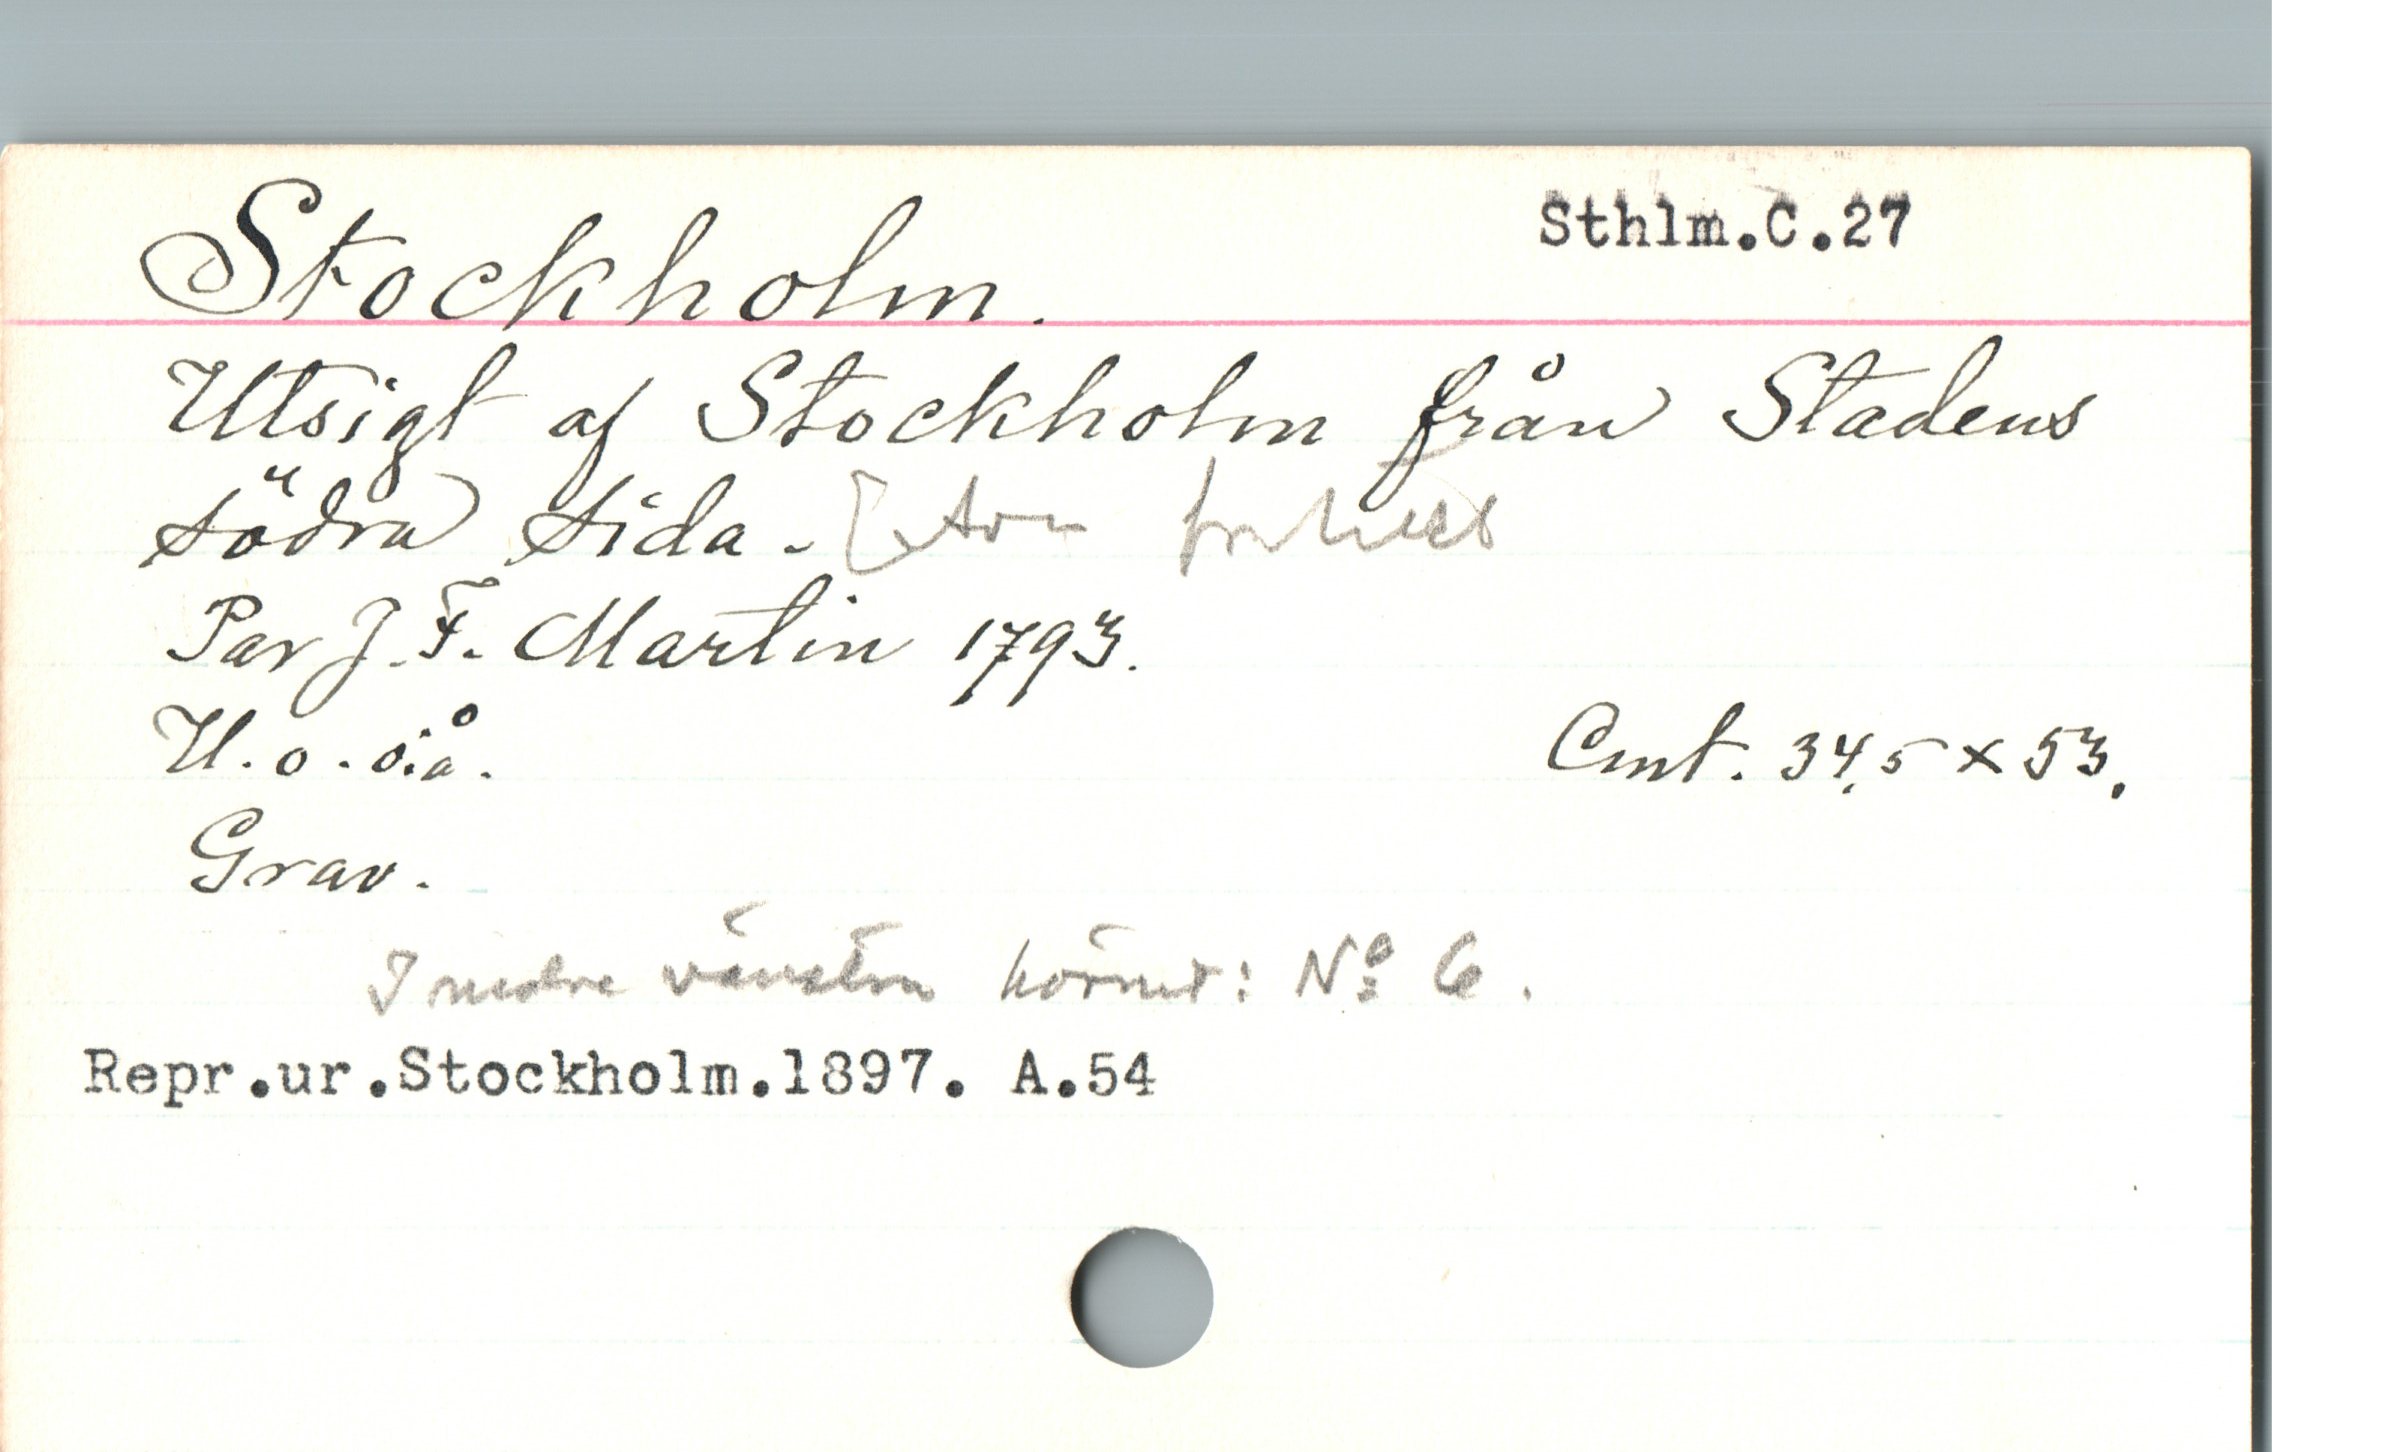 Stockholm.
Sthlm.C.27
Utsigt af Stockholm från Stadens
södra sida.
Par J. F. Martin 1793.
U. o. o. å.
Cmt. 34,5 × 53.
Grav.
I nedre vänstra hörnet: Nº 6.
Repr.ur.Stockholm.1897. A.54